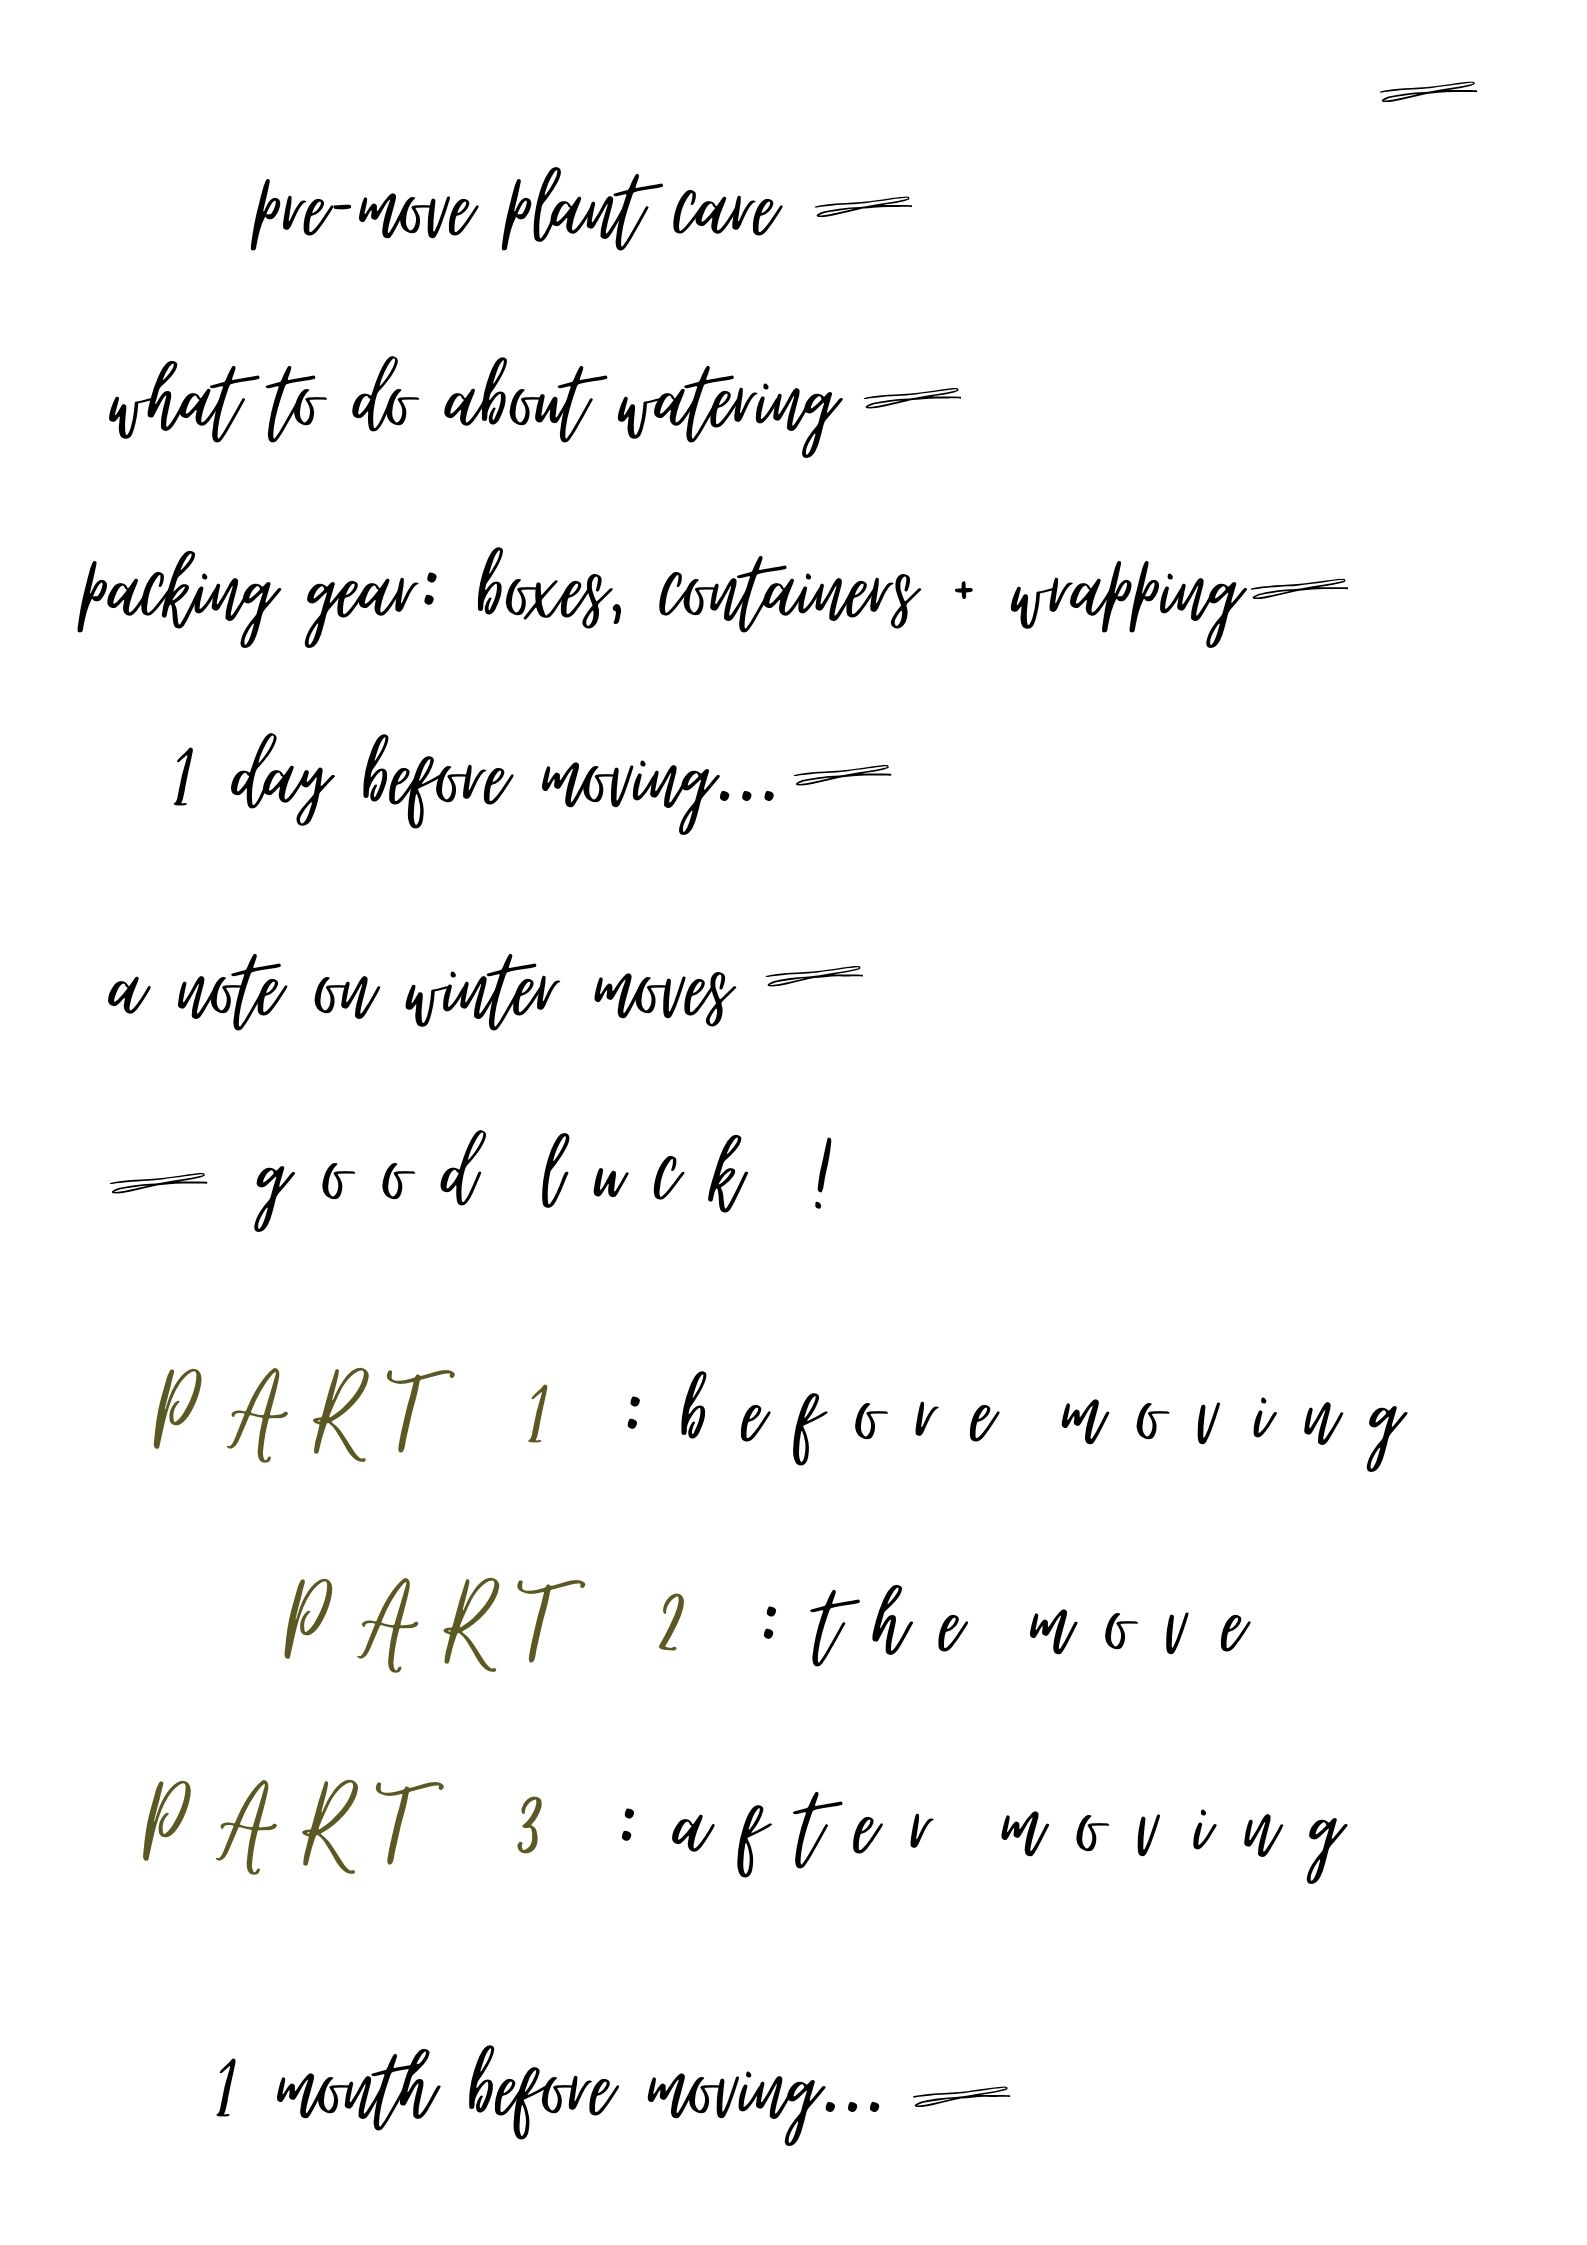 pre-move plant care
what to do about watering
packing gear: boxes, containers + wrapping
1 day before moving...
a note on winter moves
good luck !
PART 1 : before moving
PART 2 : the move
PART 3 : after moving
1 month before moving...